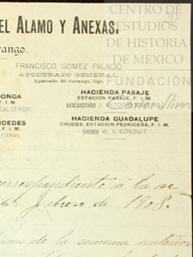 CENTRO DE
ESTUDIOS
DE HISTORIA
DE MEXICO
FUNDACIÓN
EL ALAMO Y ANEXAS.
rango.
FRANCISCO GOMEZ PALACIO
APODERADO GENERAL
Apartado 85 Durango, Dgo.
ONGA
F. I. M.
CALDERON
HACIENDA PASAJE
ESTACION PASAJE, F. I. M.
CEDES
F. I. M.
HACIENDA GUADALUPE
CRUCES, ESTACION PEDRICEÑA, F. I. M.
Gerente W. S. CONDUIT
correspondiente á la se
de febrero de 1908.
de la semana anterior